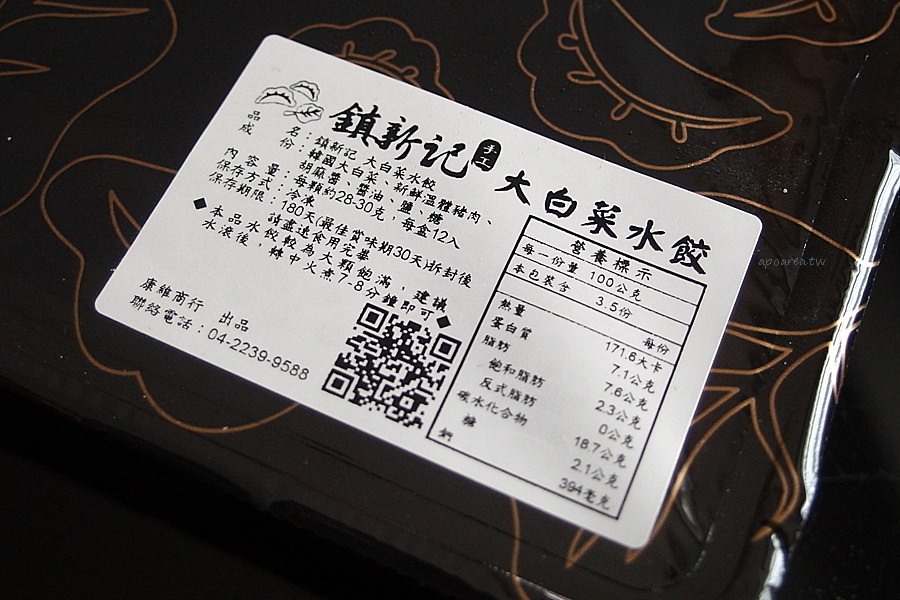 鎮新記 手工 大白菜水餃
品名：鎮新記 大白菜水餃
成份：韓國大白菜、新鮮溫體豬肉、
胡麻醬、醬油、鹽、糖
內容量：每顆約28-30克，每盒12入
保存方式：冷凍
保存期限：180天(最佳賞味期30天)拆封後
請盡速食用完畢
◆本品水餃較為大顆飽滿，建議
水滾後，轉中火煮7-8分鐘即可◆
康維商行 出品
聯絡電話：04-2239-9588
營養標示
每一份量 100公克
本包裝含 3.5份
每份
熱量 171.6大卡
蛋白質 7.1公克
脂肪 7.6公克
飽和脂肪 2.3公克
反式脂肪 0公克
碳水化合物 18.7公克
糖 2.1公克
鈉 394毫克
apoarea.tw